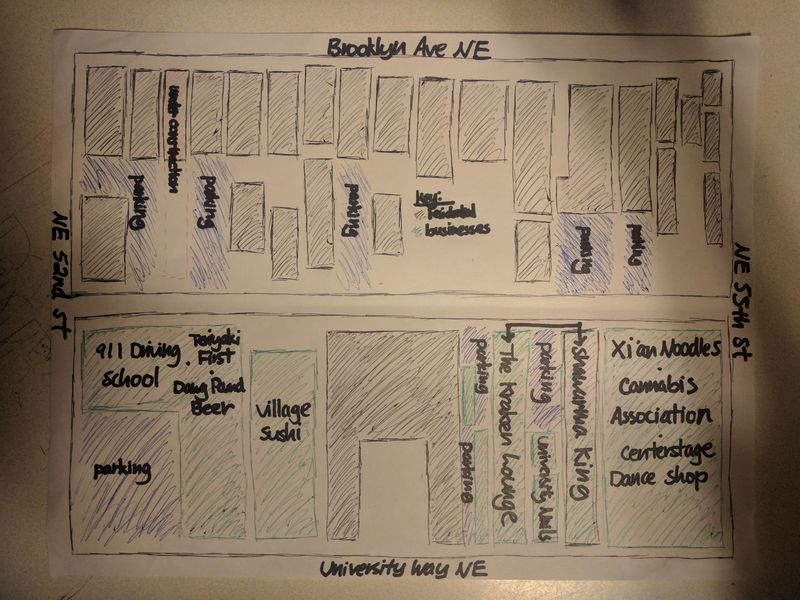 Brooklyn Ave NE
under construction
parking
parking
parking
key:
residential
businesses
parking
parking
NE 52nd st
NE 55th st
911 Driving
School
Teriyaki
First
Dawg Pound
Beer
parking
village
sushi
parking
parking
The Kraken Lounge
parking
University Nails
Shawarma King
Xi'an Noodles
Cannabis
Association
Centerstage
Dance shop
University Way NE